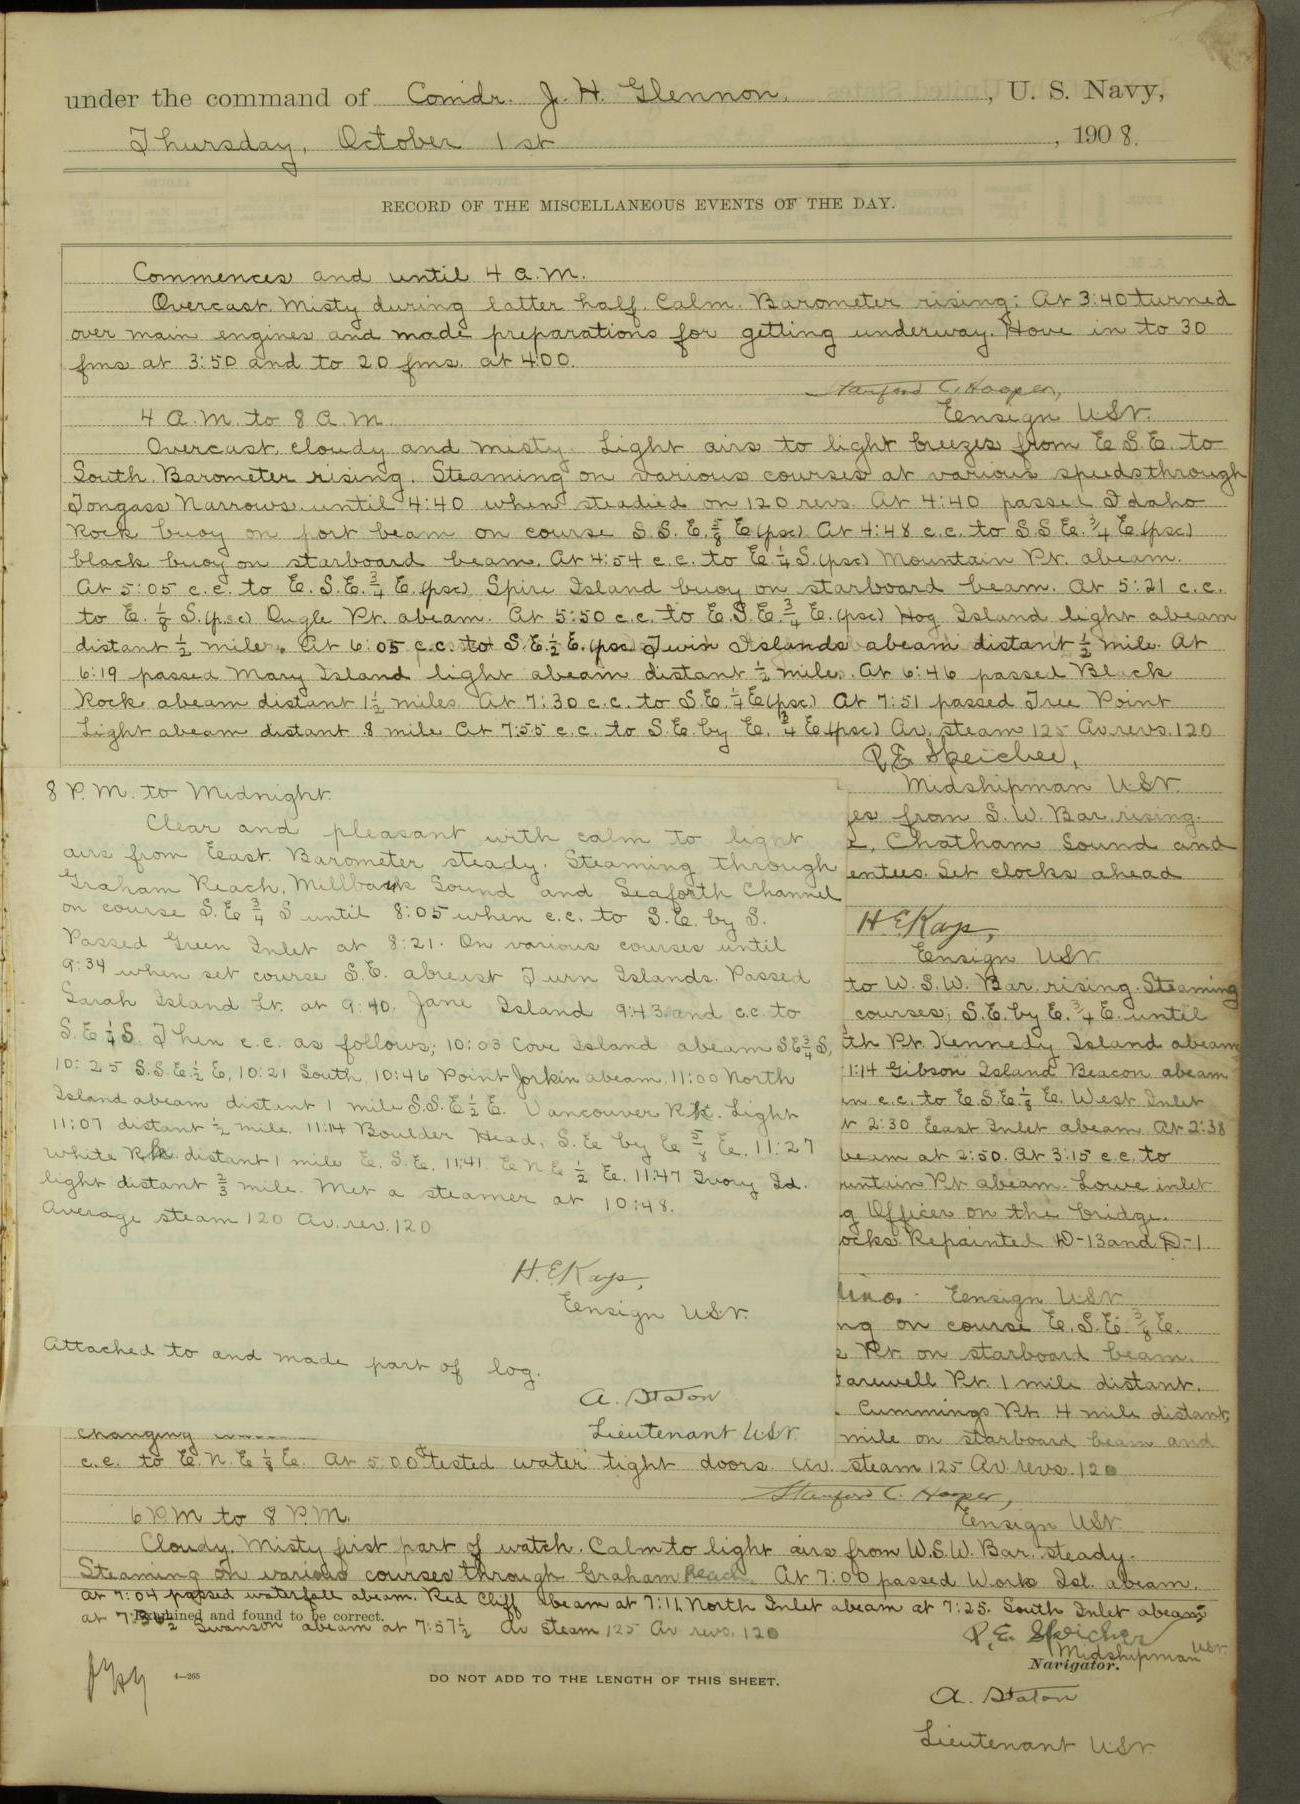 under the command of Comdr. J. H. Glennon, U. S. Navy,
Thursday, October 1st, 1908.
RECORD OF THE MISCELLANEOUS EVENTS OF THE DAY.
Commences and until 4 a.m.
Overcast. Misty during latter half. Calm. Barometer rising: At 3:40 turned
over main engines and made preparations for getting underway. Hove in to 30
fms at 3:50 and to 20 fms. at 4:00.
Stanford C. Hooper,
Ensign USN.
4 A.M. to 8 A.M.
Overcast, cloudy and misty. Light airs to light breezes from E S.E. to
South. Barometer rising. Steaming on various courses at various speeds through
Tongass Narrows until 4:40 when steadied on 120 revs. At 4:40 passed Idaho
Rock buoy on port beam on course S.S.E. 5/8 E (psc) At 4:48 c.c. to S.S.E. 3/4 E (psc)
black buoy on starboard beam. At 4:54 c.c. to E 1/4 S. (psc) Mountain Pt. abeam.
At 5:05 c.c. to E. S.E. 3/4 E. (psc) Spire Island buoy on starboard beam. At 5:21 c.c.
to E. 1/8 S. (p.s.c) Angle Pt. abeam. At 5:50 c.c. to E.S.E. 3/4 E. (psc) Hog Island light abeam
distant 1/2 mile. At 6:05 c.c. to S.E. 1/2 E. (psc) Twin Islands abeam distant 1/2 mile. At
6:19 passed Mary Island light abeam distant 1/2 mile. At 6:46 passed Black
Rock abeam distant 1 1/2 miles. At 7:30 c.c. to S.E. 1/4 E (psc.) At 7:51 passed Tree Point
Light abeam distant .8 mile At 7:55 c.c. to S.E. by E. 3/4 E (psc) Av. steam 125 Av. revs. 120
P.E. Speicher,
Midshipman USN.
8 P.M. to Midnight.
Clear and pleasant with calm to light
airs from East. Barometer steady. Steaming through
Graham Reach, Millbank Sound and Seaforth Channel
on course S.E 3/4 S until 8:05 when c.c. to S.E. by S.
Passed Green Inlet at 8:21. On various courses until
9:34 when set course S.E. abreast Turn Islands. Passed
Sarah Island Lt. at 9:40. Jane Island 9:43 and c.c. to
S.E 1/4 S. Then c.c. as follows; 10:03 Cove Island abeam S.E 3/4 S,
10:25 S.S.E. 1/2 E, 10:21 South, 10:46 Point Jorkin abeam, 11:00 North
Island abeam distant 1 mile S.S.E 1/2 E. Vancouver Rk. Light
11:07 distant 1/2 mile. 11:14 Boulder Head, S.E by E 5/8 E., 11:27
White Rk. distant 1 mile E. S.E. 11:41 E N E 1/2 E. 11:47 Ivory Id.
light distant 2/3 mile. Met a steamer at 10:48.
Average steam 120 Av. rev. 120
H.E. Kays,
Ensign USN.
Attached to and made part of log.
A. Staton
Lieutenant USN.
ges from S.W. Bar. rising.
e, Chatham Sound and
entees. Set clocks ahead
H. E. Kays,
Ensign USN.
to W.S.W. Bar. rising. Steaming
courses; S.E. by E. 3/4 E. until
th Pt. Kennedy Island abeam
1:14 Gibson Island Beacon abeam
en c.c. to E.S.E. 1/8 E. West Inlet
t 2:30 East Inlet abeam At 2:38
beam at 2:50. At 3:15 c.c. to
untain Pt abeam. Lowe inlet
g Officer on the bridge.
ocks Repainted D-13 and D-1
Ensign USN.
ng on course E.S.E. 3/8 E.
e Pt. on starboard beam.
Farewell Pt. 1 mile distant.
. Cummings Pt. 4 mile distant,
mile on starboard beam and
changing
c.c. to E.N.E 1/8 E. At 5:00 tested water tight doors. Av. steam 125 Av. revs. 120
Stanford C. Hooper,
Ensign USN.
6 P.M to 8 P.M.
Cloudy. Misty first part of watch. Calm to light airs from W.S.W. Bar. steady.
Steaming on various courses through Graham Reach. At 7:00 passed Work Isl. abeam.
at 7:04 passed waterfall abeam. Red Cliff abeam at 7:11, North Inlet abeam at 7:25. South Inlet abeam
at 7:30 1/2 Swanson abeam at 7:57 1/2 Av steam 125 Av revs. 120
Examined and found to be correct.
P. E. Speicher
Midshipman USN.
Navigator.
4—265
DO NOT ADD TO THE LENGTH OF THIS SHEET.
A. Staton
Lieutenant USN.